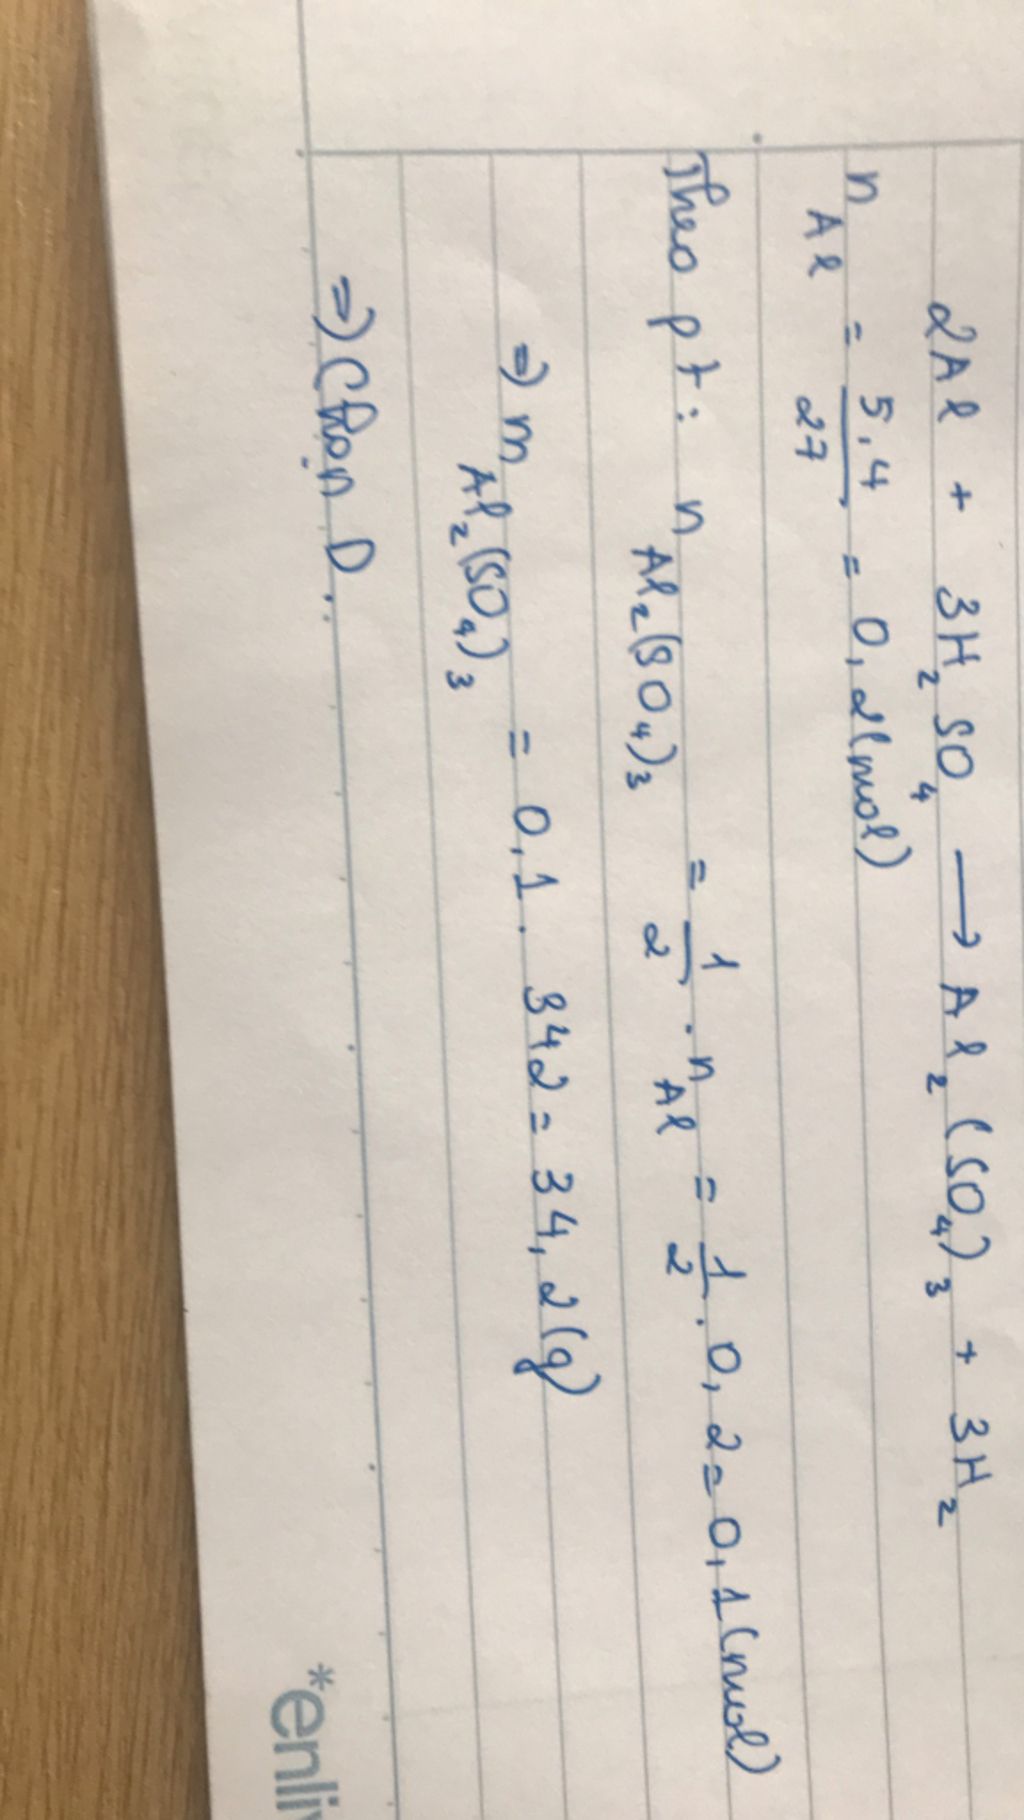 2Al + 3H₂SO₄ ⟶ Al₂(SO₄)₃ + 3H₂
n_Al = 5,4/27 = 0,2(mol)
Theo pt: n_Al₂(SO₄)₃ = 1/2 . n_Al = 1/2 . 0,2 = 0,1(mol)
=> m_Al₂(SO₄)₃ = 0,1 . 342 = 34,2(g)
=> Chọn D..